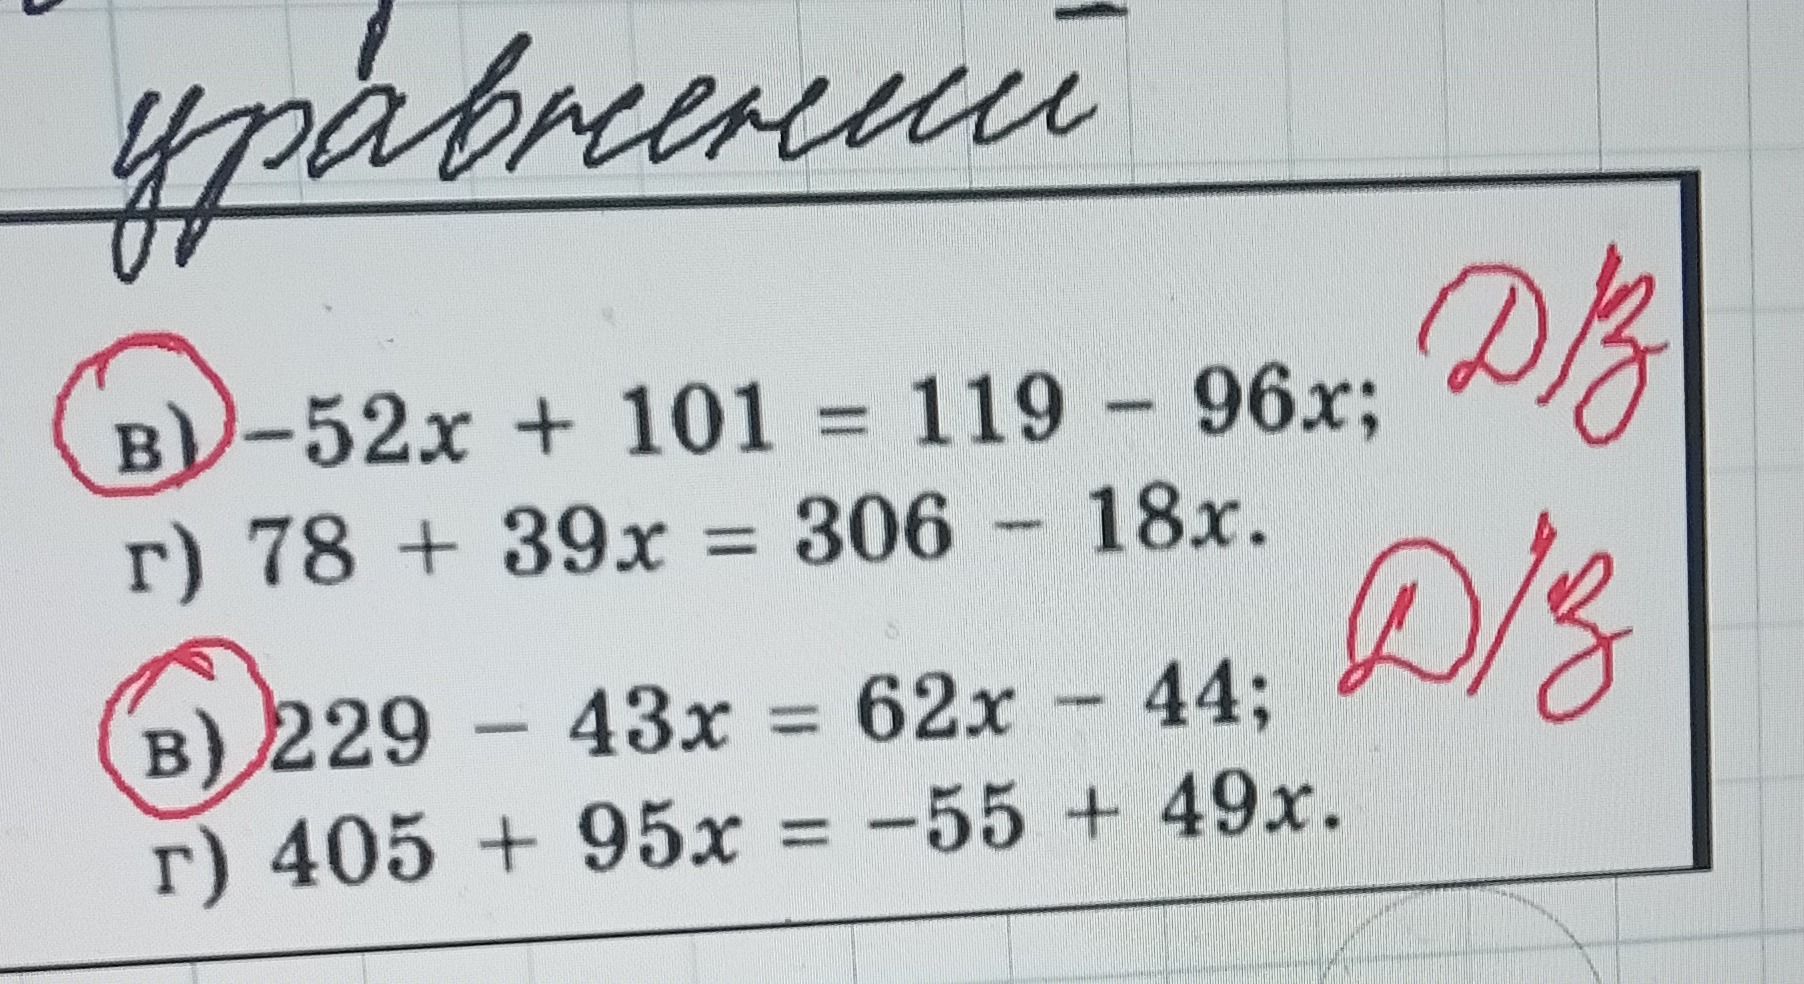 уравнений
в) -52x + 101 = 119 - 96x; Д/з
г) 78 + 39x = 306 - 18x.
в) 229 - 43x = 62x - 44; Д/з
г) 405 + 95x = -55 + 49x.